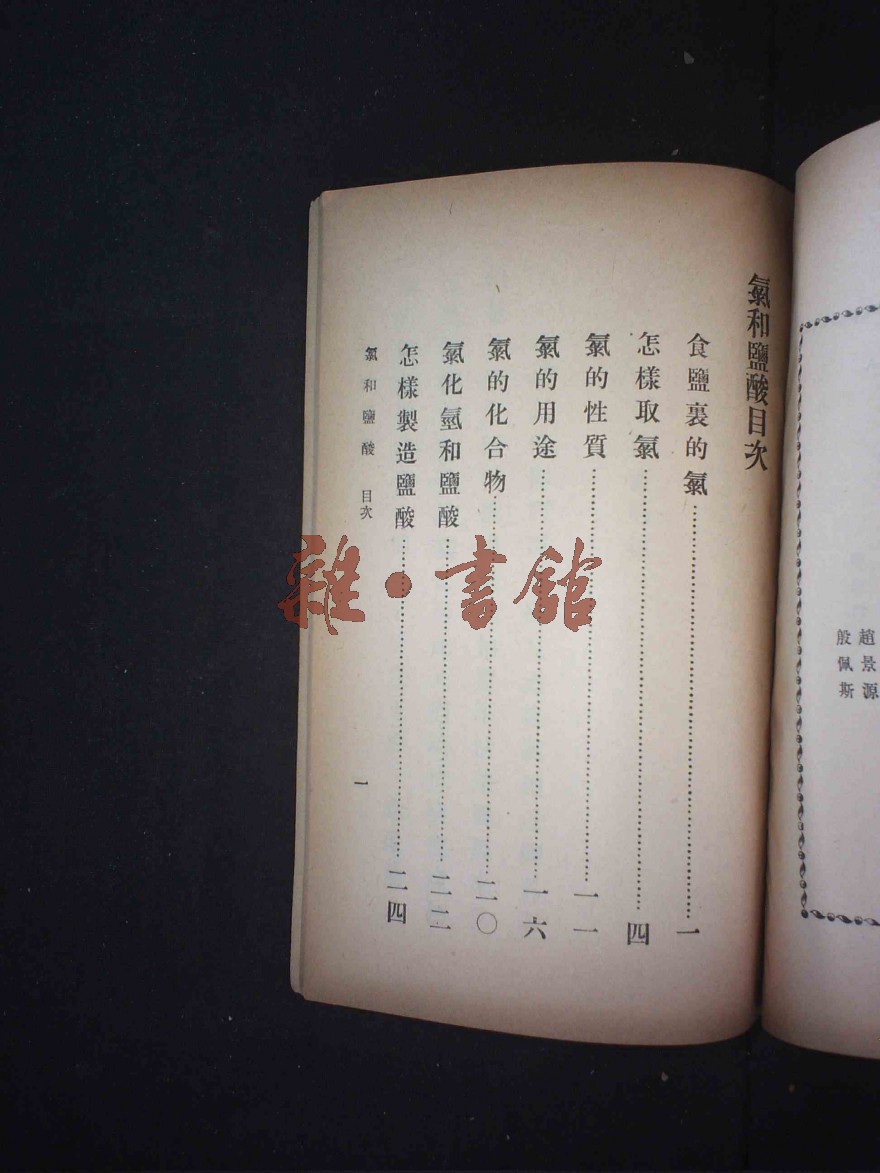 趙景源
殷佩斯
氯和鹽酸目次
食鹽裏的氯……一
怎樣取氯……四
氯的性質……一一
氯的用途……一六
氯的化合物……二〇
氯化氫和鹽酸……二二
怎樣製造鹽酸……二四
氯和鹽酸 目次
一
雜·書館